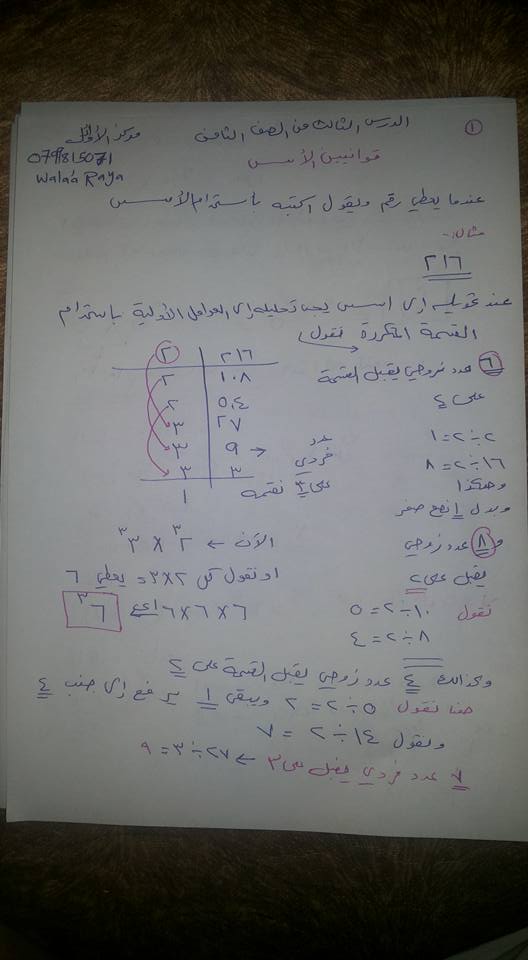 ①
الدرس الثالث من الصف الثامن
مركز الأوائل
0799815071
Walaa Raya
قوانيين الأسس
عندما يعطي رقم ويقول اكتبه بأستخدام الأسس
مثال:-
٢١٦
عند تحويله إلى اسس يجب تحليله إلى العوامل الأولية بأستخدام
القسمة المتكررة نقول
٦ عدد زوجي يقبل القسمة
على ٢
٢ ÷ ٢ = ١
١٦ ÷ ٢ = ٨
وهكذا
وبدل ١ نضع صفر
و ٨ عدد زوجي
يقبل على ٢
نقول ١٠ ÷ ٢ = ٥
٨ ÷ ٢ = ٤
٢ | ٢١٦
٢ | ١٠٨
٢ | ٥٤
٣ | ٢٧
٣ | ٩ → عدد فردي
٣ | ٣ نقسمه على ٣
١
الآن ← ٢³ × ٣³
او نقول كل ٢ × ٣ = يعطي ٦
٦ × ٦ × ٦ اي ٦³
وكذالك ٤ عدد زوجي يقبل القسمة على ٢
هنا نقول ٥ ÷ ٢ = ٢ ويبقى ١ يرفع إلى جنب ٤
ونقول ١٤ ÷ ٢ = ٧
٧ عدد فردي يقبل على ٣ ← ٢٧ ÷ ٣ = ٩